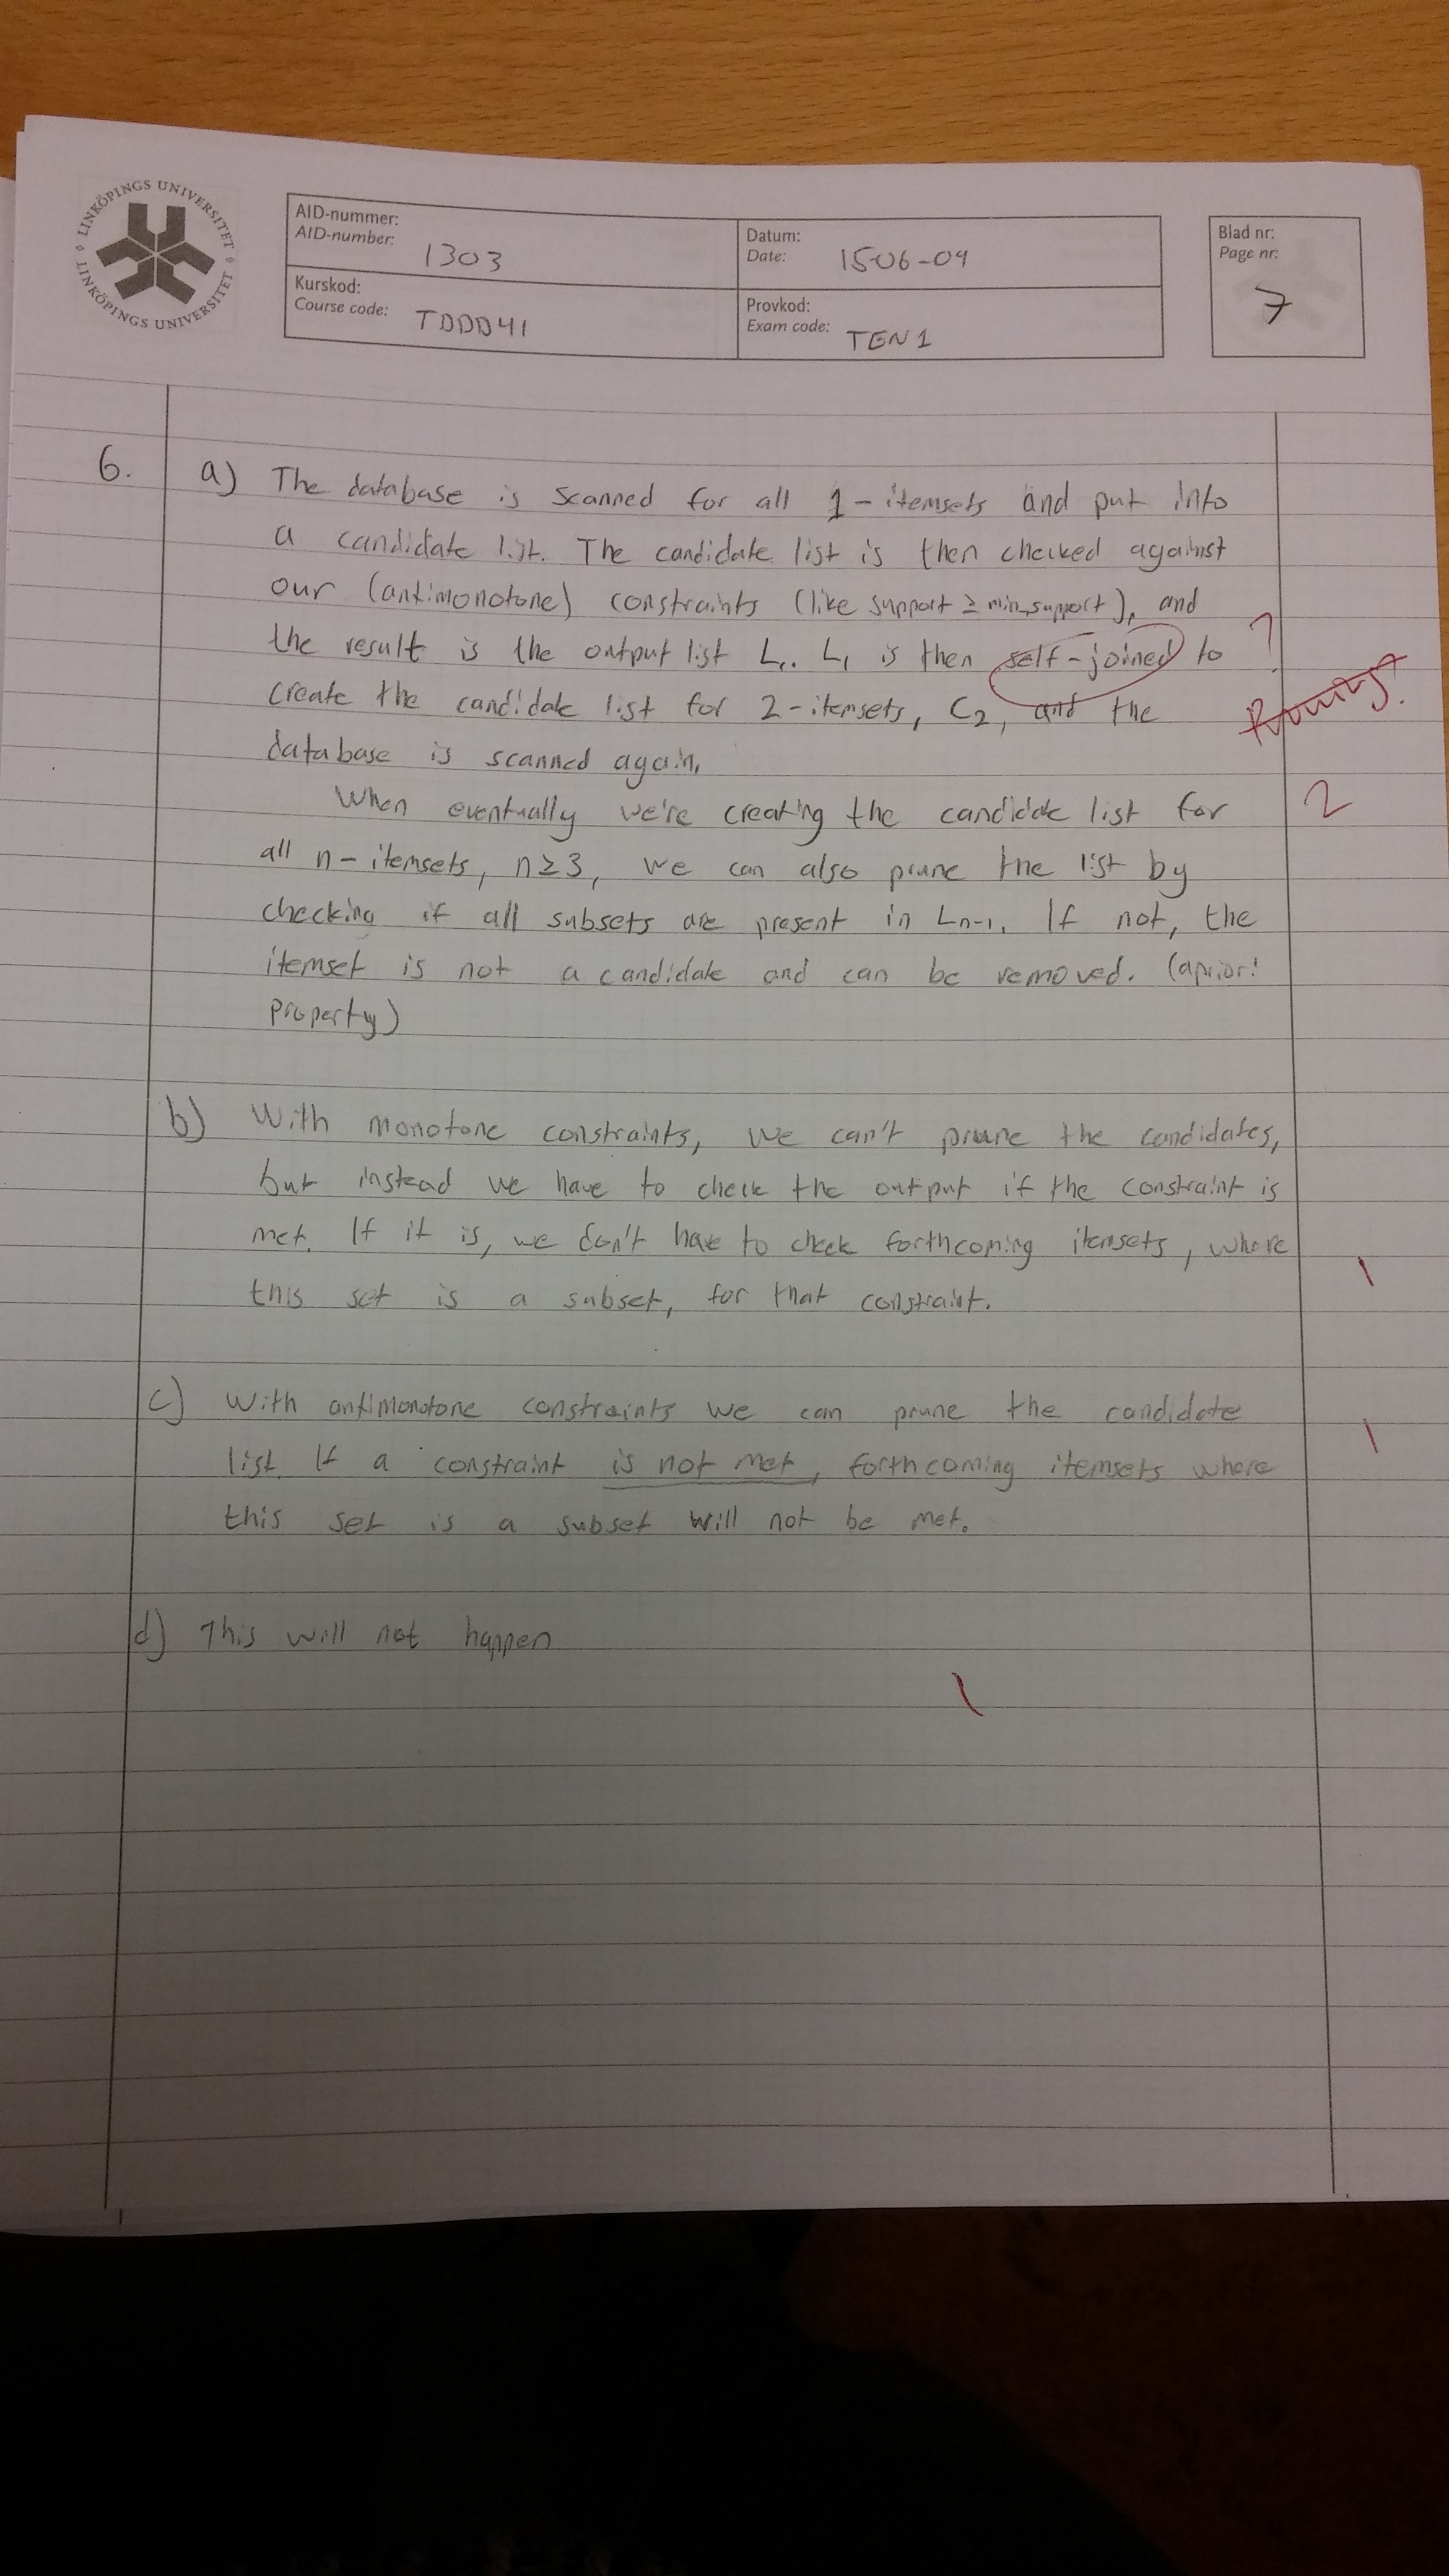 LINKÖPINGS UNIVERSITET
LINKÖPINGS UNIVERSITET
AID-nummer:
AID-number: 1303
Datum:
Date: 15-06-04
Blad nr:
Page nr:
7
Kurskod:
Course code: TDDD41
Provkod:
Exam code: TEN1
6. a) The database is scanned for all 1-itemsets and put into
a candidate list. The candidate list is then checked against
our (antimonotone) constraints (like support ≥ min_support), and
the result is the output list L1. L1 is then self-joined to ?
create the candidate list for 2-itemsets, C2, and the
database is scanned again.
When eventually we're creating the candidate list for 2
all n-itemsets, n≥3, we can also prune the list by
checking if all subsets are present in Ln-1. If not, the
itemset is not a candidate and can be removed. (apriori
property)
b) With monotone constraints, we can't prune the candidates,
but instead we have to check the output if the constraint is
met. If it is, we don't have to check forthcoming itemsets, where
this set is a subset, for that constraint. 1
c) With antimonotone constraints we can prune the candidate
list. If a constraint is not met, forthcoming itemsets where 1
this set is a subset will not be met.
d) This will not happen
1